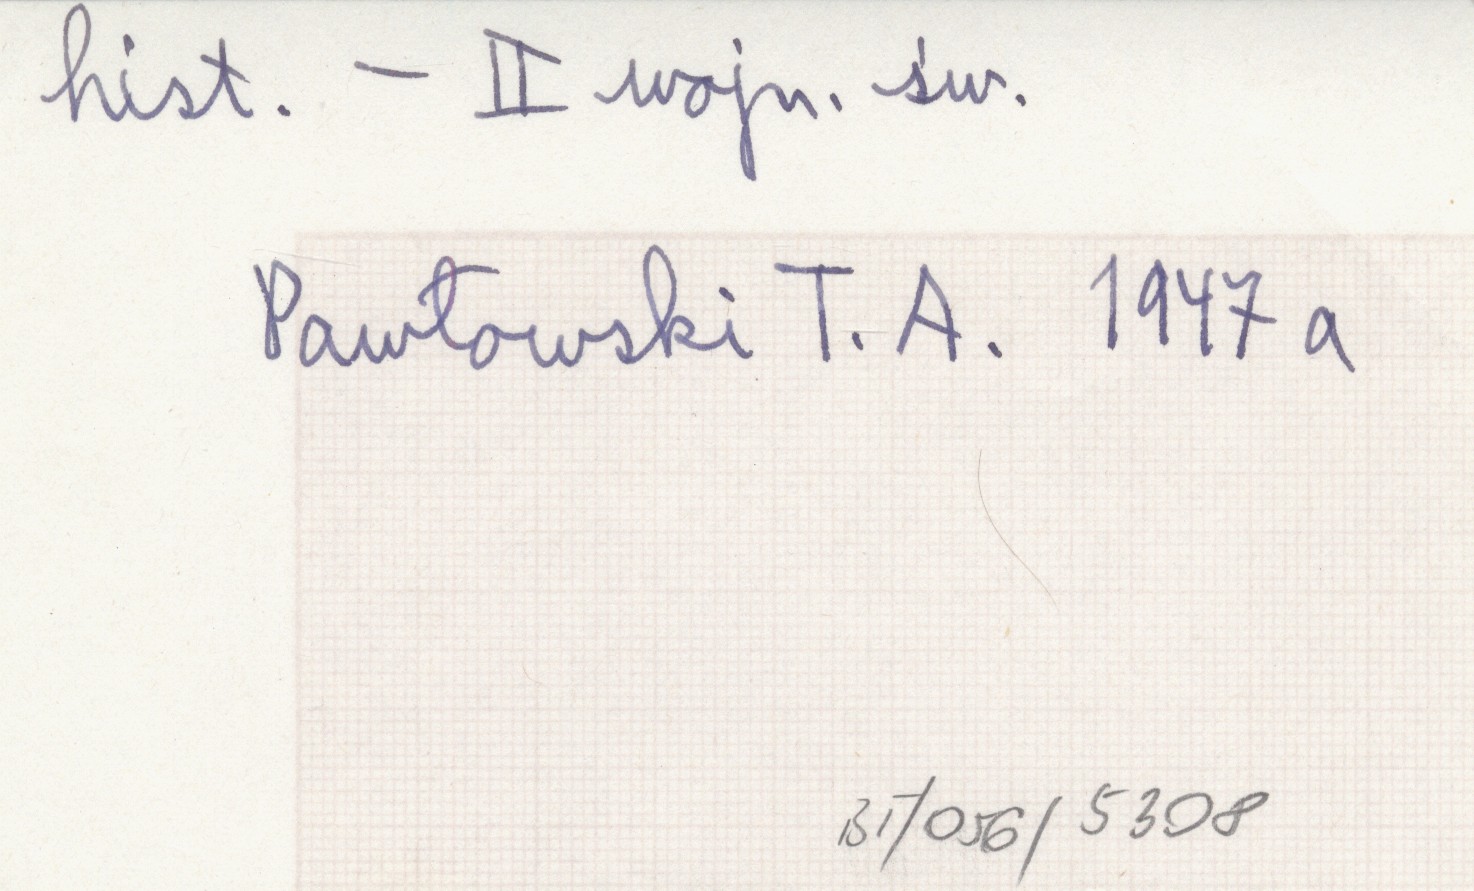 hist. – II wojn. św.
Pawłowski T. A. 1947 a
BT/056/5308